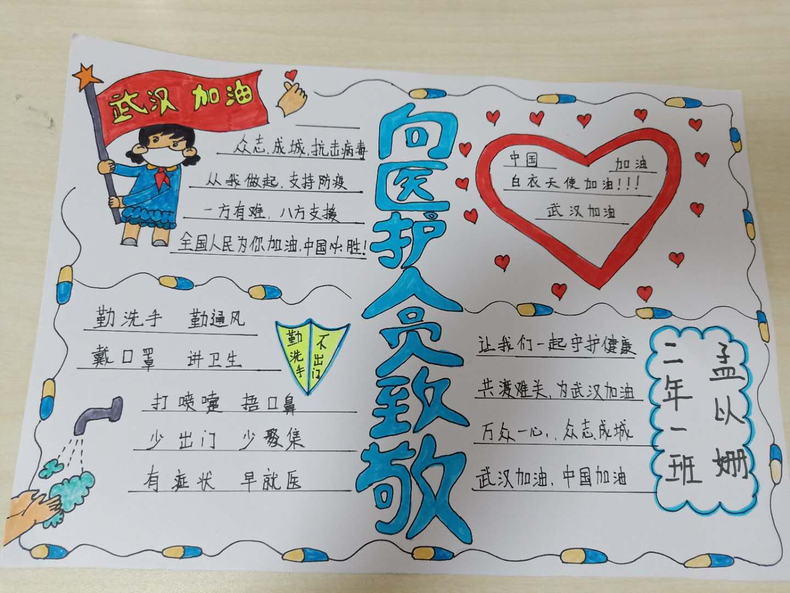 武汉 加油
众志成城,抗击病毒
从我做起,支持防疫
一方有难,八方支援
全国人民为你加油,中国必胜!
向医护人员致敬
中国 加油
白衣天使加油!!!
武汉加油
勤洗手 勤通风
戴口罩 讲卫生
打喷嚏 捂口鼻
少出门 少聚集
有症状 早就医
勤洗手
不出门
让我们一起守护健康
共渡难关,为武汉加油
万众一心,众志成城
武汉加油,中国加油
二年一班
孟以姗